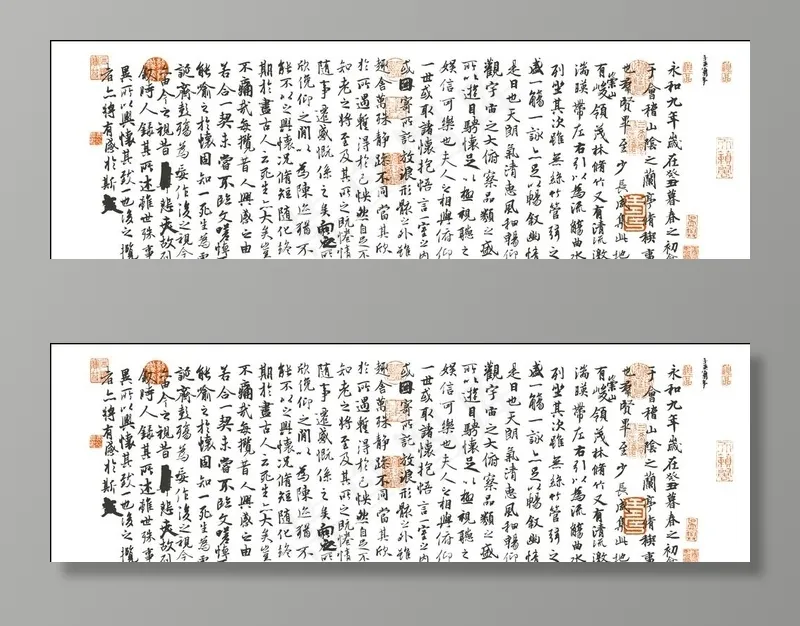 永和九年歲在癸丑暮春之初
于會稽山陰之蘭亭脩禊事
也羣賢畢至少長咸集此地
崇山
有峻領茂林脩竹又有清流激
湍暎帶左右引以為流觴曲水
列坐其次雖無絲竹管弦之
盛一觴一詠亦足以暢敘幽情
是日也天朗氣清惠風和暢仰
觀宇宙之大俯察品類之盛
所以遊目騁懷足以極視聽之
娛信可樂也夫人之相與俯仰
一世或取諸懷抱悟言一室之內
或因寄所託放浪形骸之外雖
趣舍萬殊靜躁不同當其欣
於所遇暫得於己怏然自足不
知老之將至及其所之既惓情
隨事遷感慨係之矣向之所
欣俛仰之閒以為陳迹猶不
能不以之興懷況脩短隨化終
期於盡古人云死生亦大矣豈
不痛哉每攬昔人興感之由
若合一契未嘗不臨文嗟悼
能喻之於懷固知一死生為
誕齊彭殤為妄作後之視今
亦由今之視昔悲夫故列
敘時人錄其所述雖世殊事
異所以興懷其致一也後之攬
者亦將有感於斯文
永和九年歲在癸丑暮春之初
于會稽山陰之蘭亭脩禊事
也羣賢畢至少長咸集此地
崇山
有峻領茂林脩竹又有清流激
湍暎帶左右引以為流觴曲水
列坐其次雖無絲竹管弦之
盛一觴一詠亦足以暢敘幽情
是日也天朗氣清惠風和暢仰
觀宇宙之大俯察品類之盛
所以遊目騁懷足以極視聽之
娛信可樂也夫人之相與俯仰
一世或取諸懷抱悟言一室之內
或因寄所託放浪形骸之外雖
趣舍萬殊靜躁不同當其欣
於所遇暫得於己怏然自足不
知老之將至及其所之既惓情
隨事遷感慨係之矣向之所
欣俛仰之閒以為陳迹猶不
能不以之興懷況脩短隨化終
期於盡古人云死生亦大矣豈
不痛哉每攬昔人興感之由
若合一契未嘗不臨文嗟悼
能喻之於懷固知一死生為
誕齊彭殤為妄作後之視今
亦由今之視昔悲夫故列
敘時人錄其所述雖世殊事
異所以興懷其致一也後之攬
者亦將有感於斯文